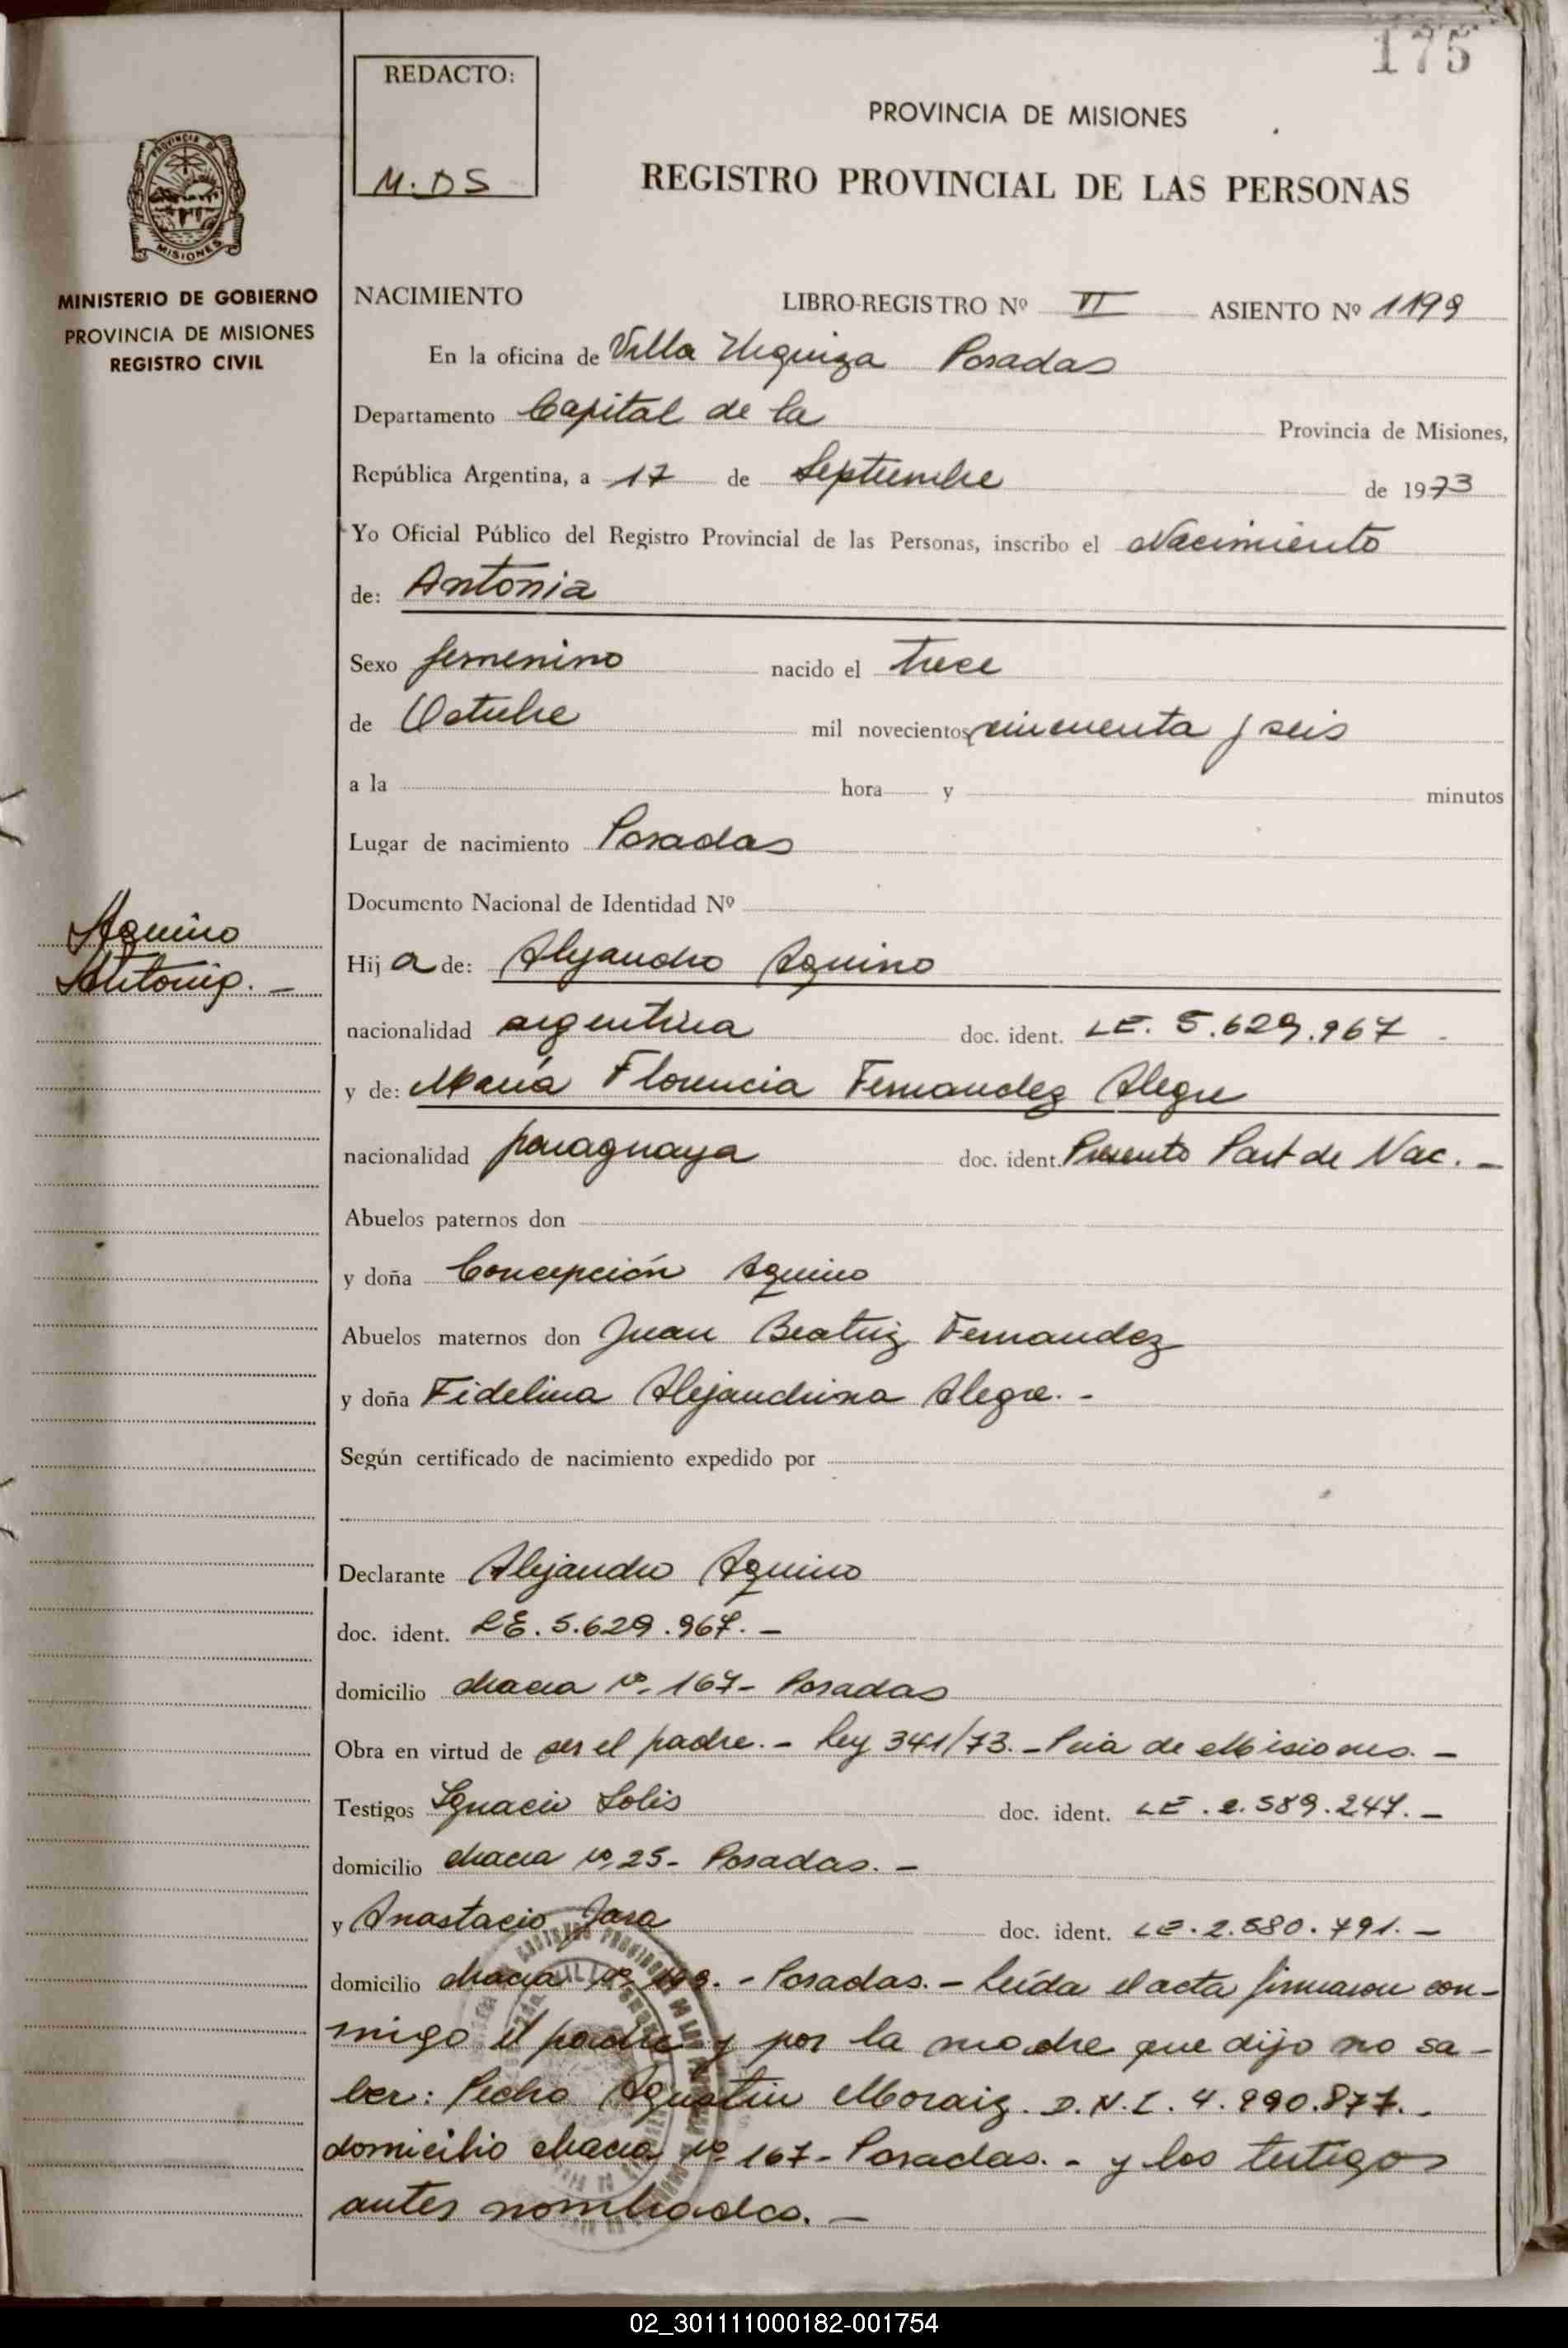 175
REDACTO:
M.DS
PROVINCIA DE MISIONES
REGISTRO PROVINCIAL DE LAS PERSONAS
PROVINCIA DE
MISIONES
MINISTERIO DE GOBIERNO
PROVINCIA DE MISIONES
REGISTRO CIVIL
NACIMIENTO LIBRO-REGISTRO Nº VI ASIENTO Nº 1199
En la oficina de Villa Urquiza Posadas
Departamento Capital de la Provincia de Misiones,
República Argentina, a 17 de Septiembre de 1973
Yo Oficial Público del Registro Provincial de las Personas, inscribo el Nacimiento
de: Antonia
Sexo femenino nacido el trece
de Octubre mil novecientos cincuenta y seis
a la hora y minutos
Lugar de nacimiento Posadas
Documento Nacional de Identidad Nº
Aquino
Antonia. -
Hij a de: Alejandro Aquino
nacionalidad argentina doc. ident. LE. 5.629.967 -
y de: María Florencia Fernandez Alegre
nacionalidad paraguaya doc. ident. Presento Part de Nac. -
Abuelos paternos don
y doña Concepción Aquino
Abuelos maternos don Juan Beatriz Fernandez
y doña Fidelina Alejandrina Alegre. -
Según certificado de nacimiento expedido por
Declarante Alejandro Aquino
doc. ident. LE. 5.629.967. -
domicilio chacra Nº 167- Posadas
Obra en virtud de ser el padre. - Ley 341/73. - Pcia de Misiones. -
Testigos Ignacio Solis doc. ident. LE. 2.589.247. -
domicilio chacra Nº 25- Posadas. -
y Anastacio Jara doc. ident. LE. 2.580.791. -
domicilio chacra Nº - Posadas. - Leída el acta firmaron con-
migo el padre y por la madre que dijo no sa-
ber: Pedro Agustin Moraiz. D.N.I. 4.990.877. -
domicilio chacra Nº 167- Posadas. - y los testigos
antes nombrados. -
02_301111000182-001754